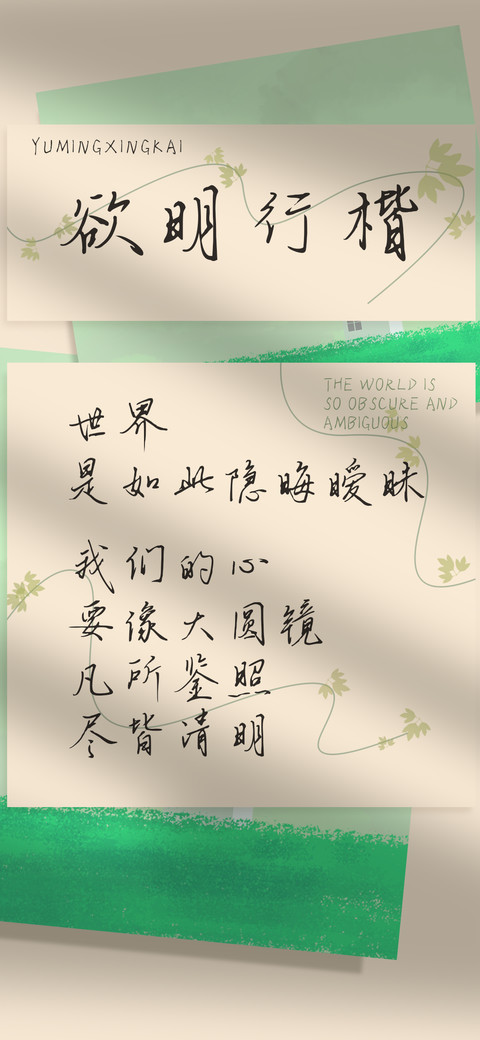 YUMINGXINGKAI
欲明行楷
THE WORLD IS
SO OBSCURE AND
AMBIGUOUS
世界
是如此隐晦暧昧
我们的心
要像大圆镜
凡所鉴照
尽皆清明